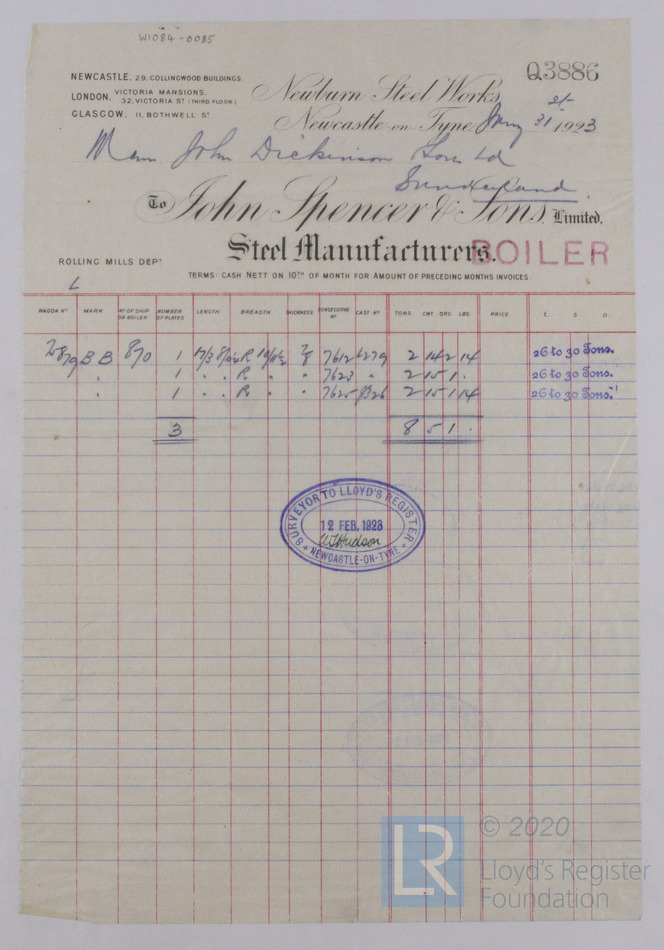 W1084-0085
Q3886
NEWCASTLE, 29, COLLINGWOOD BUILDINGS.
LONDON, VICTORIA MANSIONS,
32, VICTORIA ST (THIRD FLOOR)
GLASGOW, 11, BOTHWELL ST
Newburn Steel Works,
Newcastle-on-Tyne, 31st 1923
John Dickinson Sons Ld
Sunderland
To John Spencer & Sons, Limited.
Steel Manufacturers.
BOILER
ROLLING MILLS DEPT
TERMS: CASH NETT ON 10TH OF MONTH FOR AMOUNT OF PRECEDING MONTHS INVOICES.
L
WAGON No MARK No OF SHIP OR BOILER NUMBER OF PLATES LENGTH BREADTH THICKNESS CONSECUTIVE No CAST No TONS. CWT. QRS. LBS. PRICE £. S. D.
2879 B B 870 1 7612 6279 2 14 2 14 26 to 30 Tons.
" 1 " " R " " 7623 " 2 15 1 . 26 to 30 Tons.
" 1 " " R " " 7625 8326 2 15 1 14 26 to 30 Tons."
3 8 5 1 .
SURVEYOR TO LLOYD'S REGISTER
12 FEB. 1923
Hudson
NEWCASTLE-ON-TYNE
LR
© 2020
Lloyd's Register
Foundation